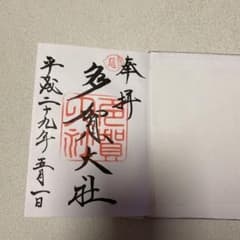 奉拝
多賀大社
平成二十九年五月一日